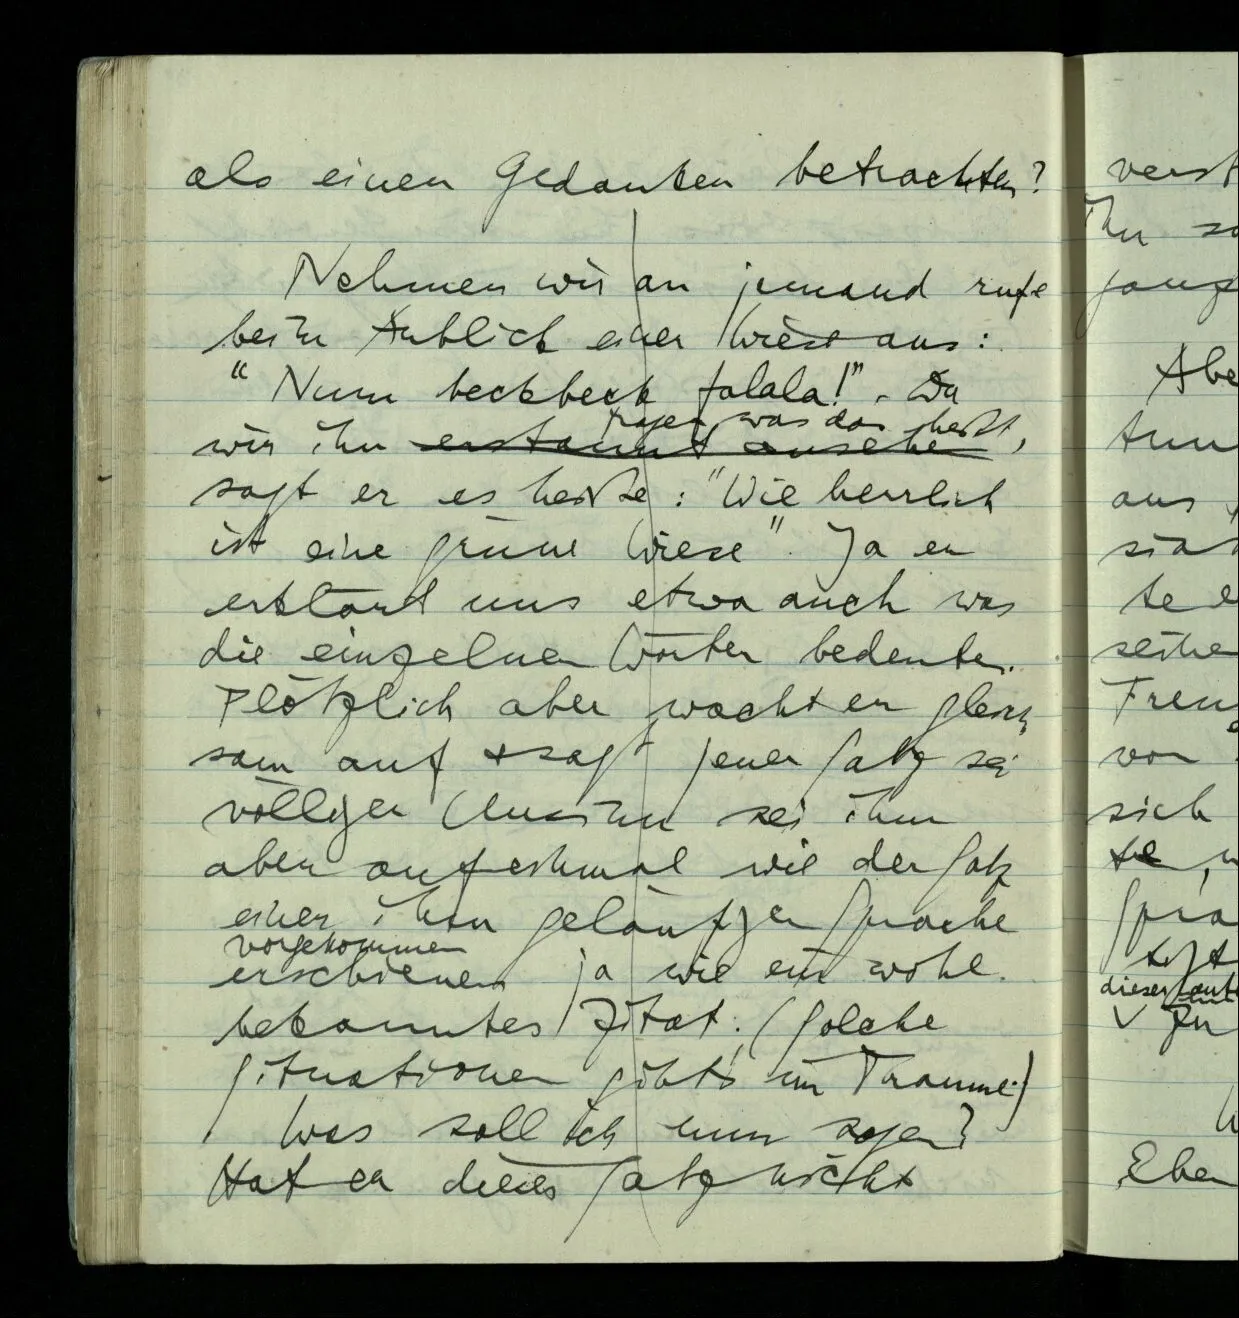 als einen Gedanken betrachten?
Nehmen wir an jemand rufe
beim Anblick einer Wiese aus:
“Num beckbeck falala!”. Da
fragen, was das heißt,
wir ihn erstaunt ansehen,
sagt er es heiße: “Wie herrlich
ist eine grüne Wiese”. Ja er
erklärt uns etwa auch was
die einzelnen Wörter bedeuten.
Plötzlich aber wacht er gleich
sam auf + sagt jener Satz sei
völliger Unsinn sei ihm
aber auf einmal wie der Satz
einer ihm geläufigen Sprache
vorgekommen
erschienen ja wie ein wohl
bekanntes Zitat. (Solche
Situationen gibt's im Traume.)
Was soll ich nun sagen?
Hat er diesen Satz nicht
verst
Ihn so
Abe
aus
seine
von
sich
te,
Spra
dieser
Eben